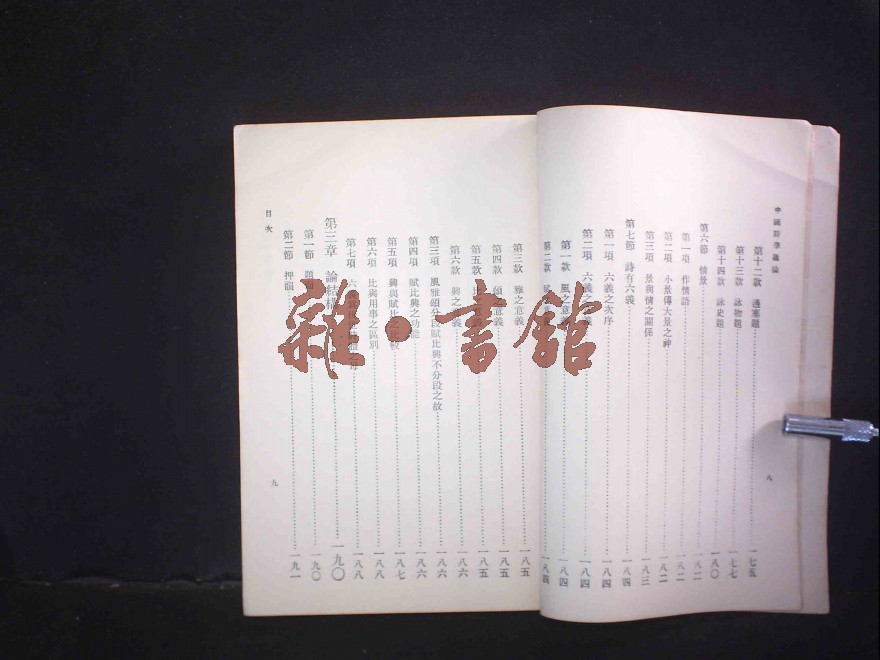 中國詩學通論
第十二款 邊塞題 一七五
第十三款 詠物題 一七七
第十四款 詠史題 一八〇
第六節 情景 一八二
第一項 作情語 一八二
第二項 小景傳大景之神 一八二
第三項 景與情之關係 一八三
第七節 詩有六義 一八四
第一項 六義之次序 一八四
第二項 六義 義 一八四
第一款 風之意 一八四
第二款 一八四
八
第三款 雅之意義 一八五
第四款 頌之意義 一八五
第五款 比 一八五
第六款 興之 義 一八六
第三項 風雅頌分段賦比興不分段之故 一八六
第四項 賦比興之功能 一八六
第五項 興與賦比之比較 一八七
第六項 比與用事之區別 一八八
第七項 六 一八八
第三章 論結構 一九〇
第一節 題 一九〇
第二節 押韻 一九一
目次
九
雜·書館